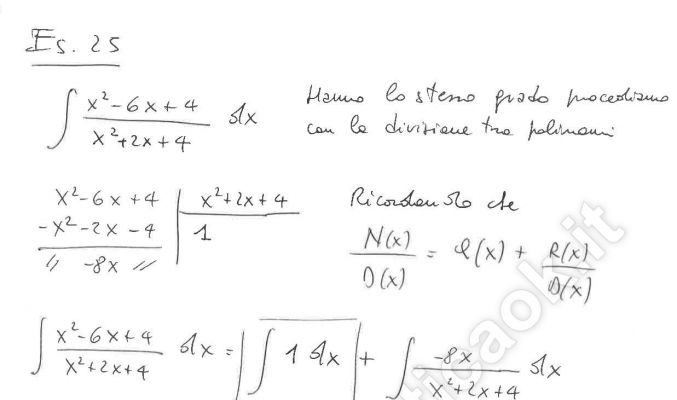 Es. 25
∫ x²-6x+4 / x²+2x+4 dx Hanno lo stesso grado procediamo
con la divisione tra polinomi
x²-6x+4 | x²+2x+4 Ricordando che
-x²-2x-4 | 1
// -8x // N(x)/D(x) = Q(x) + R(x)/D(x)
∫ x²-6x+4 / x²+2x+4 dx = ∫ 1 dx + ∫ -8x / x²+2x+4 dx
ticaok.it